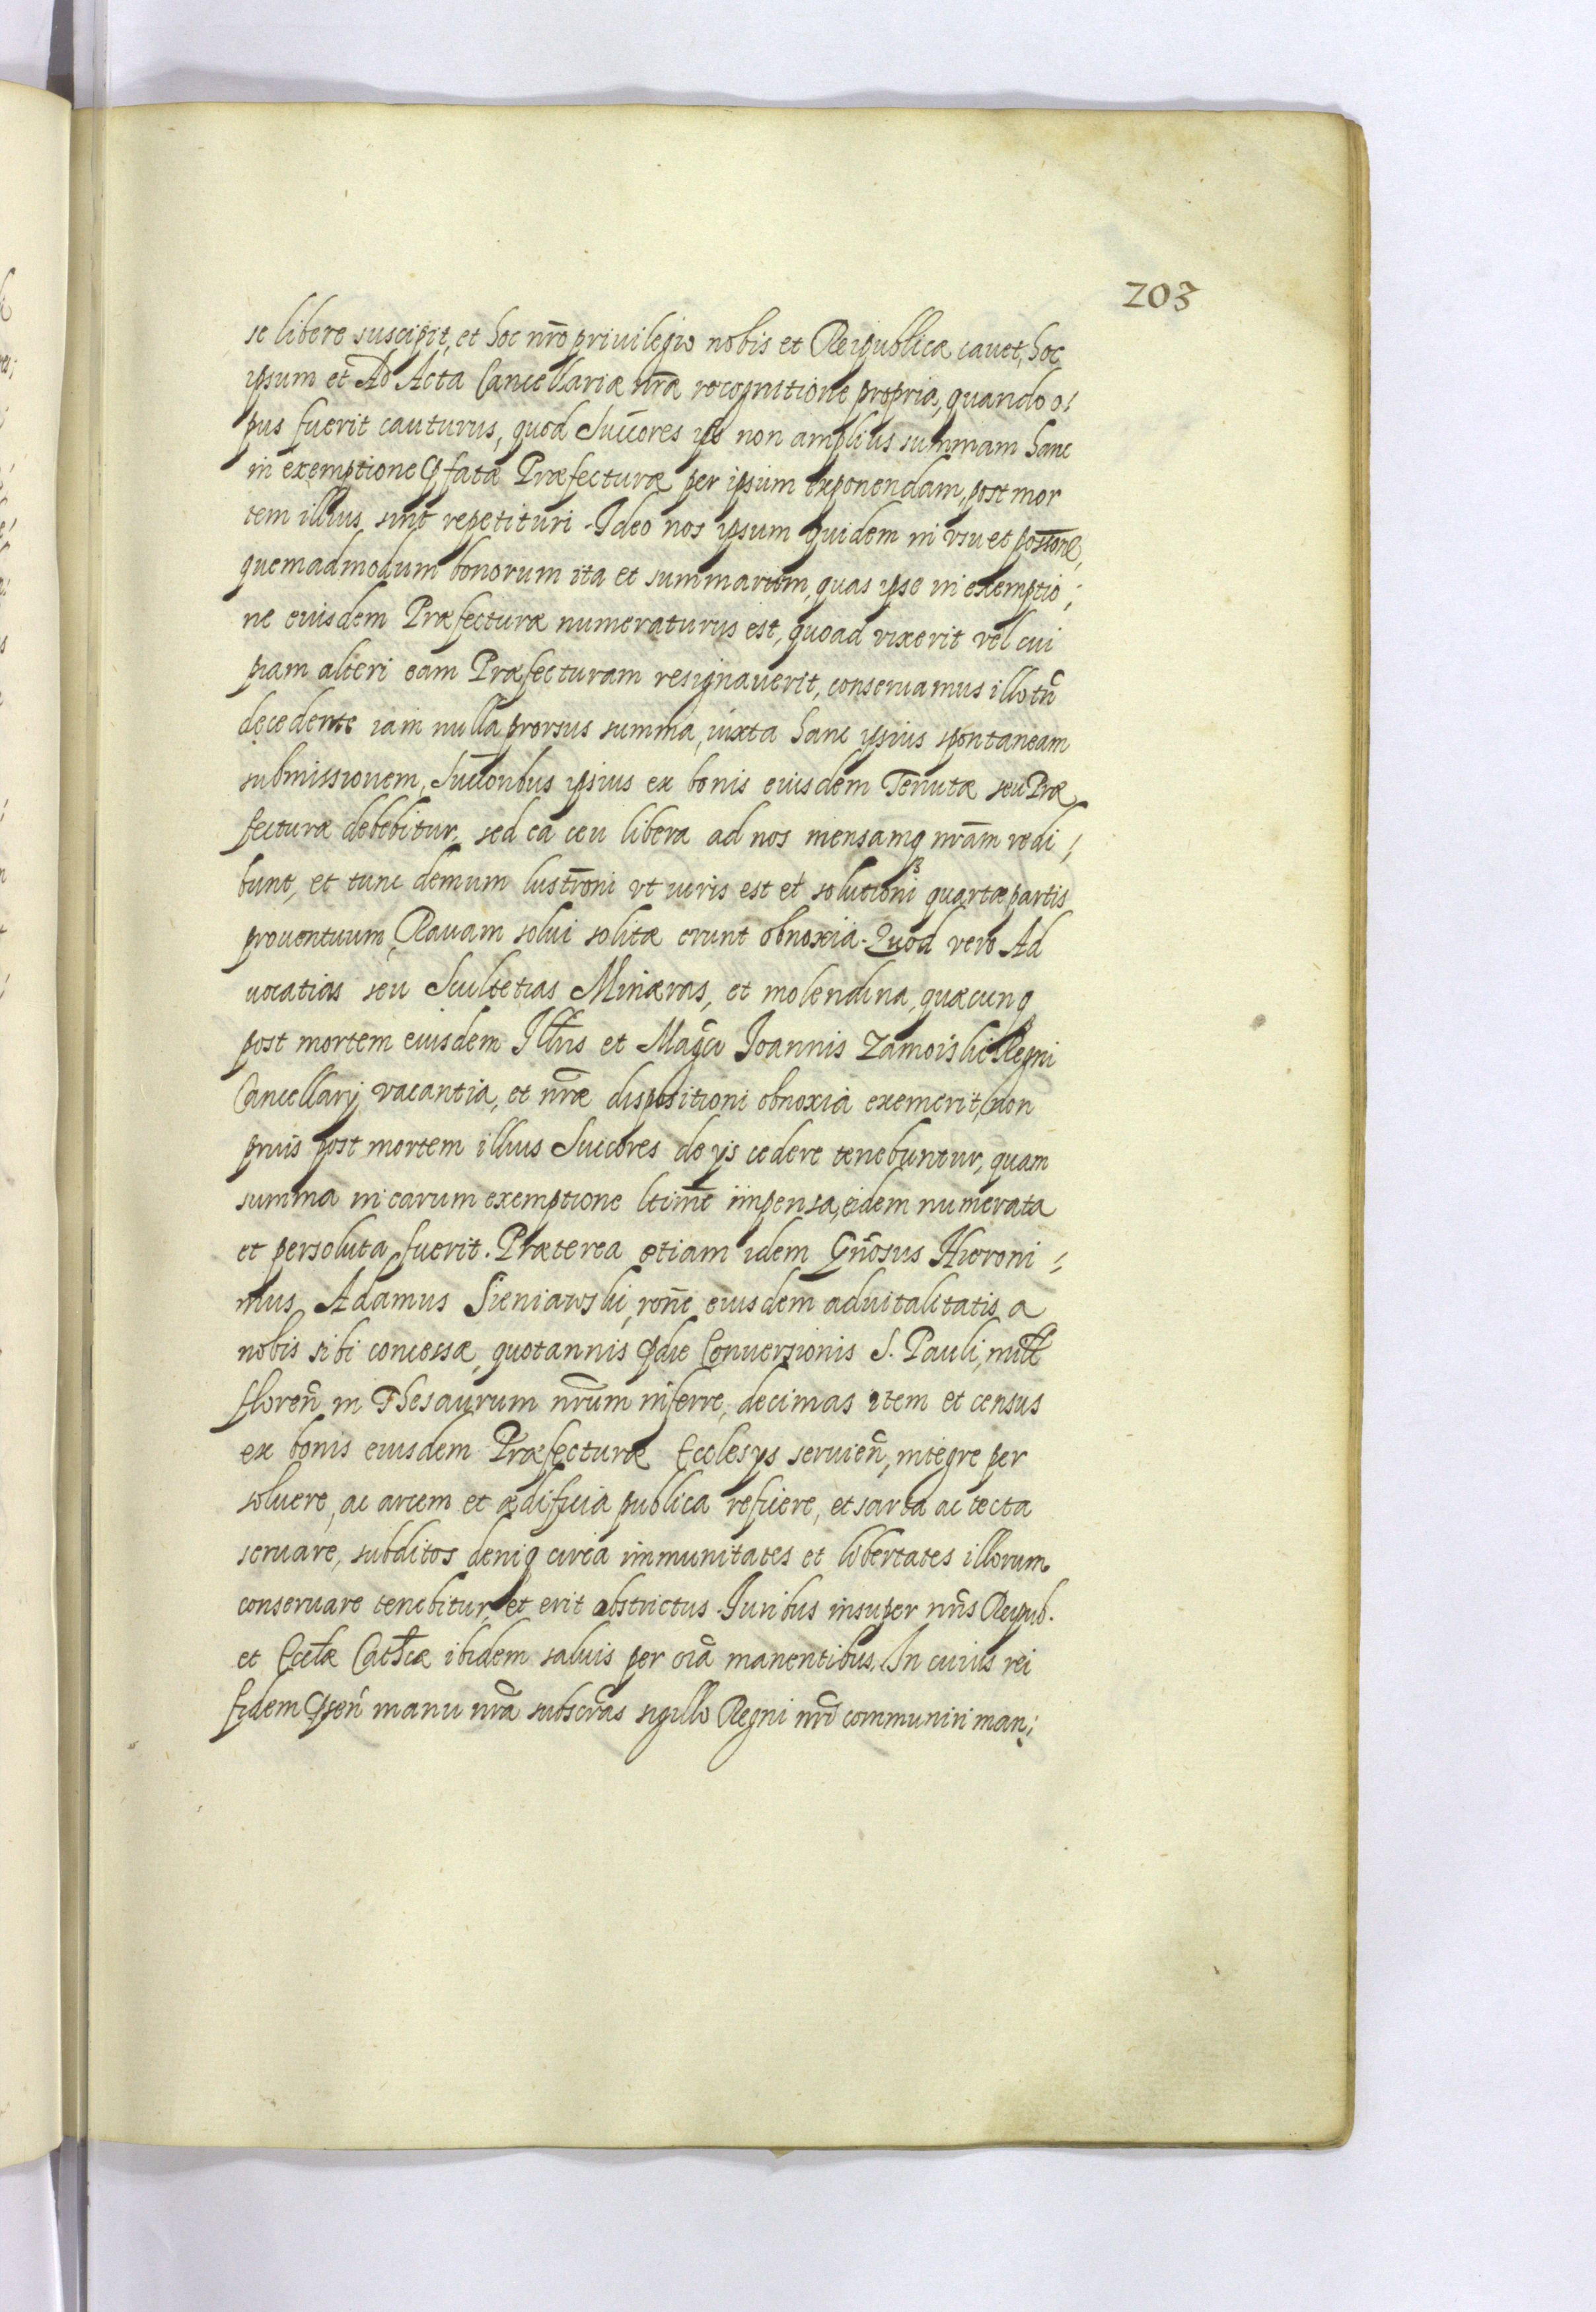 203
se libere suscipit, et hoc nr̃o priuilegio nobis et Reipublicæ cauet, hoc
ipsum et Ad Acta Cancellariæ nr̃æ recognitione propria, quando o;
pus fuerit cauturus, quod Succores ips non amplius summam hanc
in exemptione ꝑfatæ Præfecturæ per ipsum exponendam, post mor
tem illius, sint repetituri. Ideo nos ipsum quidem in vsu et possone,
quemadmodum bonorum ita et summarum, quas ipse in exemptio;
ne eiusdem Præfecturæ numeraturus est, quoad vixerit vel cui
piam alteri eam Præfecturam resignauerit, conseruamus illo tñ
decedente iam nulla prorsus summa, iuxta hanc ipsius spontaneam
submissionem, Succoribus ipsius ex bonis eiusdem Tenutæ seu Præ
fecturæ debebitur, sed ea ceu libera ad nos mensamq nr̃am redi;
bunt, et tunc demum lustr̃oni vt iuris est et solutioni quartæ partis
prouentuum, Rauam solui solitæ erunt obnoxia. Quod vero Ad
uocatias seu Scultetias Minæras, et molendina, quæcunq
post mortem eiusdem Illris et Magci Ioannis Zamoiski Regni
Cancellarij vacantia, et nr̃æ dispositioni obnoxia exemerit, non
prius post mortem illius Succores de ijs cedere tenebuntur, quam
summa in earum exemptione ltime impensa, eidem numerata
et persoluta fuerit. Præterea etiam idem Gñosus Hieroni;
mus Adamus Sieniawski, rone eiusdem aduitalitatis a
nobis sibi concessæ, quotannis ꝓ die Conuersionis S. Pauli, mille
floreñ in Thesaurum nr̃um inferre, decimas item et census
ex bonis eiusdem Præfecturæ Ecclesijs seruieñ, integre per
soluere, ac arcem et ædificia publica reficere, et sarta ac tecta
seruare, subditos deniq circa immunitates et libertates illorum
conseruare tenebitur, et erit abstrictus. Iuribus insuper nr̃is Reipub.
et Eccłæ Cathcæ ibidem saluis per oĩa manentibus. In cuius rei
fidem ꝑseñ manu nr̃a subscr̃as sigillo Regni nr̃i communiri man;